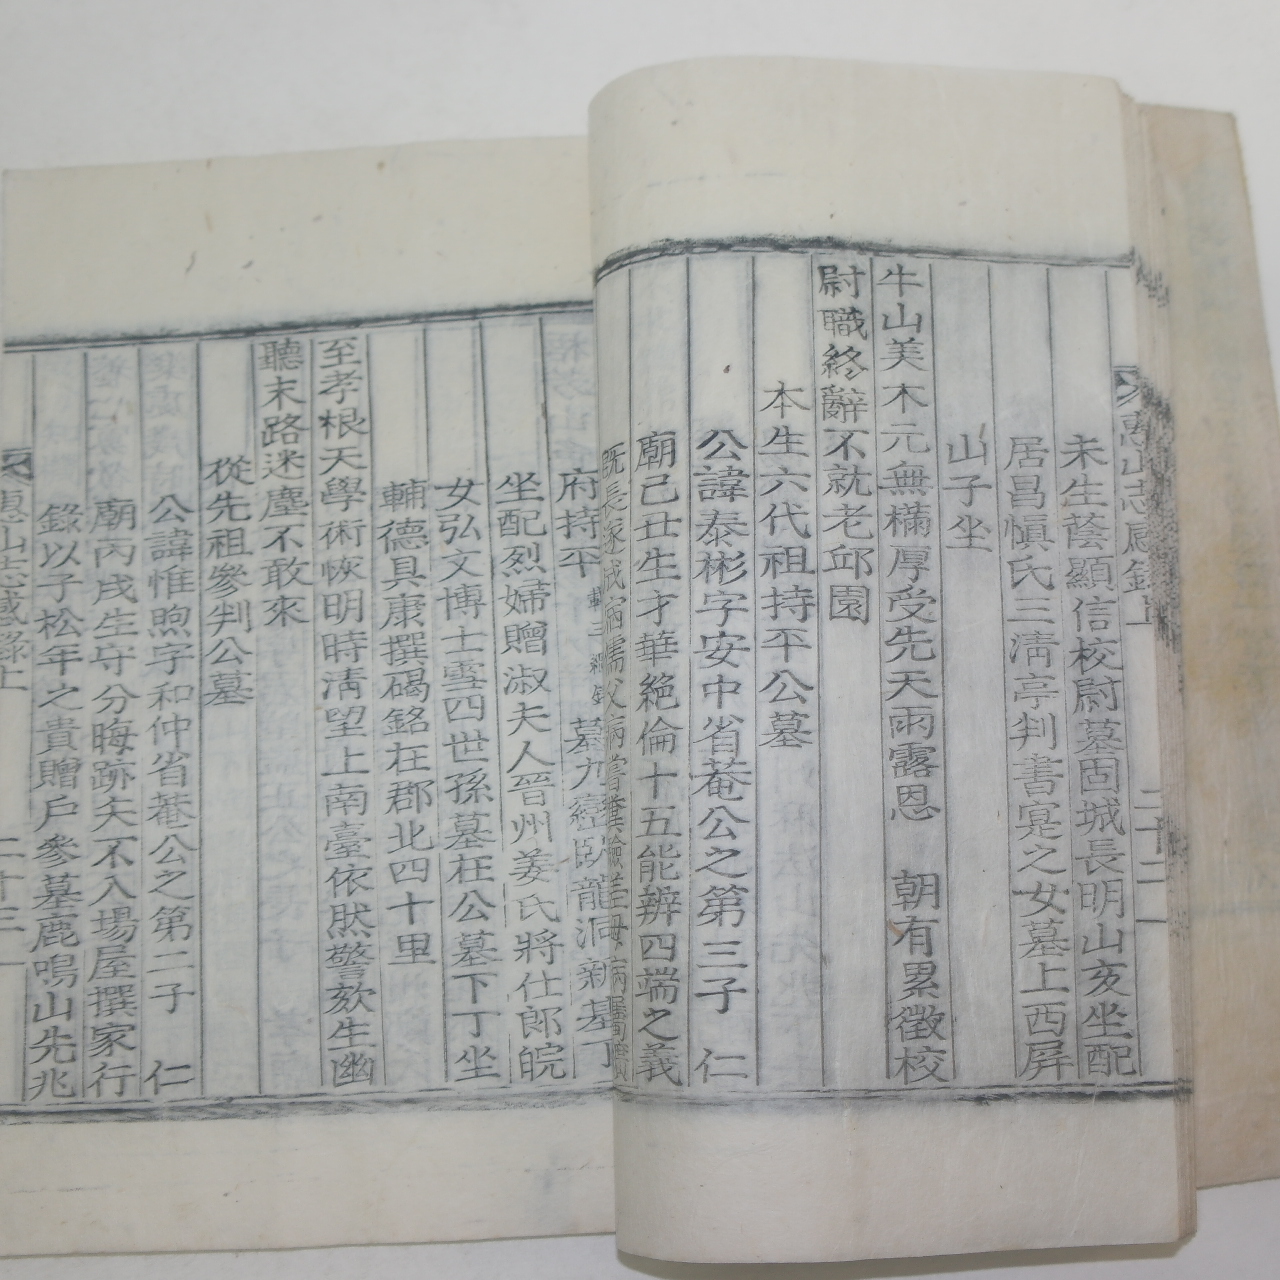 惠山志感錄上 二十二
未生蔭顯信校尉墓固城長明山亥坐配
居昌愼氏三淸亭判書寔之女墓上西屛
山子坐
牛山美木元無櫹厚受先天雨露恩 朝有累徵校
尉職終辭不就老邱園
本生六代祖持平公墓
公諱泰彬字安中省菴公之第三子 仁
廟己丑生才華絶倫十五能辨四端之義
旣長遂成病儒父病嘗糞母病
府持平 載三綱錄 墓九巒臥龍洞新基丁
坐配烈婦贈淑夫人晉州姜氏將仕郞皖
女弘文博士雩四世孫墓在公墓下丁坐
輔德具康撰碣銘在郡北四十里
至孝根天學術恢明時淸望上南臺依然警欬生幽
聽末路迷塵不敢來
從先祖參判公墓
公諱惟煦字和仲省菴公之第二子 仁
廟丙戌生守分晦跡夫不入場屋撰家行
錄以子松年之貴贈戶參墓鹿鳴山先兆
惠山志感錄上 二十三